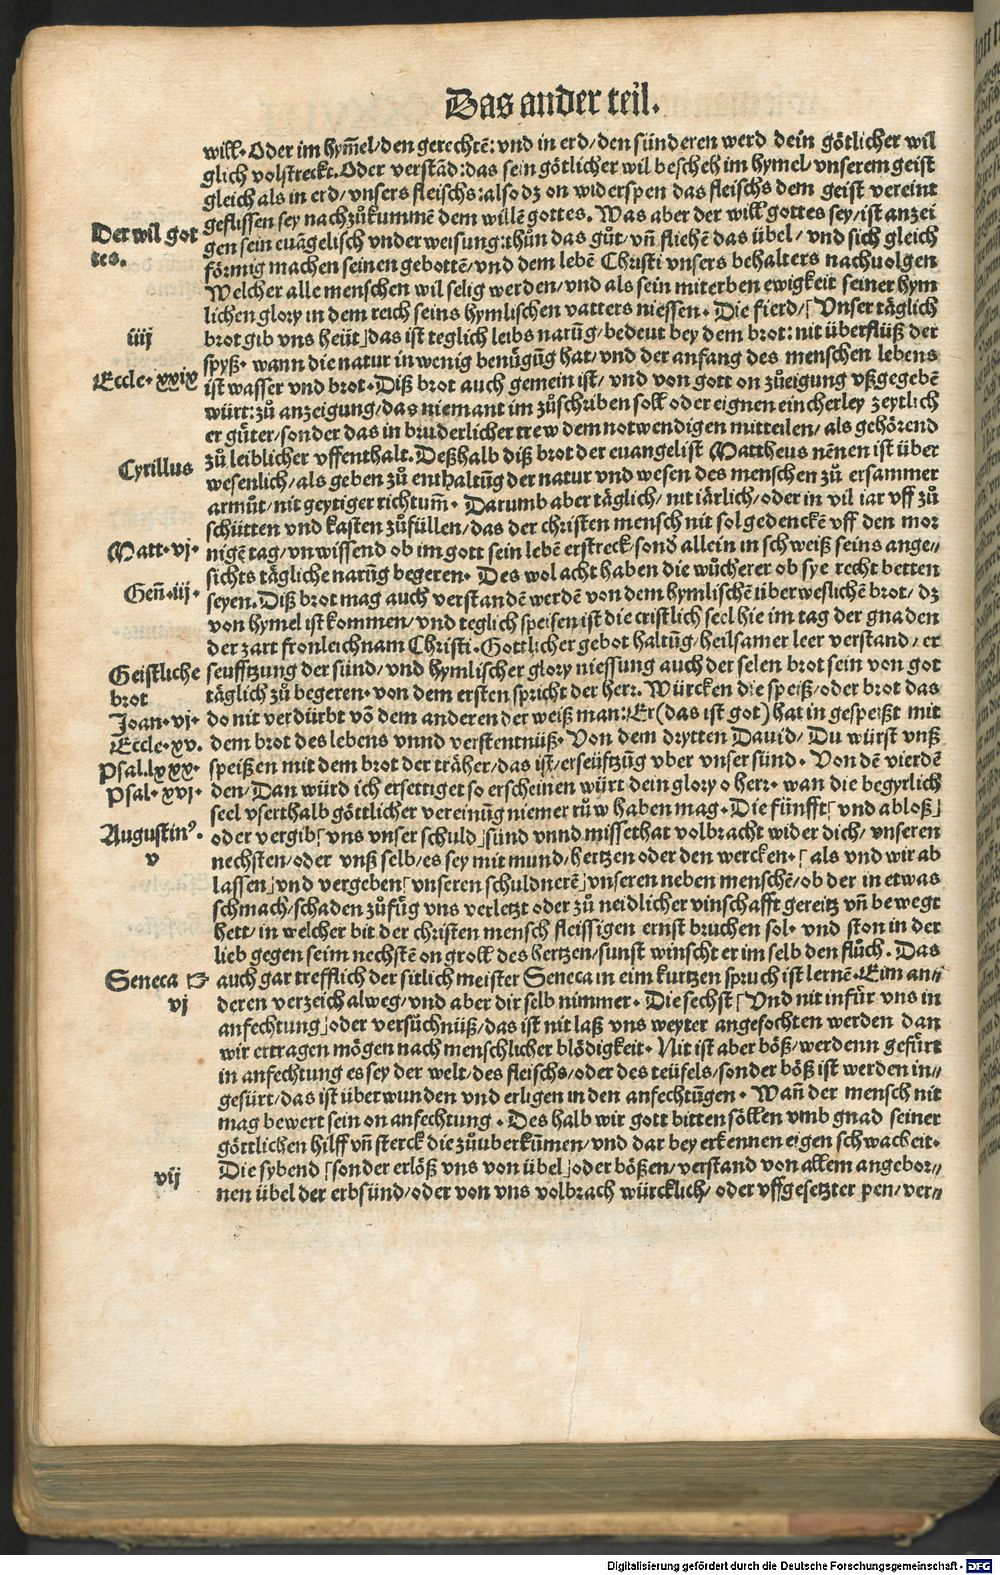 Das ander teil.
will. Oder im hym̃el/den gerechtẽ: vnd in erd/den sünderen werd dein götlicher wil
glich volstreckt. Oder verstãd: das sein götlicher wil bescheh im hymel/vnserem geist
gleich als in erd/vnsers fleischs: also dz on widerspen das fleischs dem geist vereint
geflissen sey nachzůkummẽ dem willẽ gottes. Was aber der will gottes sey/ist anzei
Der wil got
tes.
gen sein euãgelisch vnderweisung: thůn das gůt/vñ fliehẽ das übel/vnd sich gleich
förmig machen seinen gebottẽ/vnd dem lebẽ Christi vnsers behalters nachuolgen
Welcher alle menschen wil selig werden/vnd als sein miterben ewigkeit seiner hym
lichen glory in dem reich seins hymlischen vatters niessen. Die fierd/⌈Vnser täglich
iiij
brot gib vns heüt⌋das ist teglich leibs narũg/bedeut bey dem brot: nit überflüß der
spyß. wann die natur in wenig benügũg hat/vnd der anfang des menschen lebens
Eccle. xxix
ist wasser vnd brot. Diß brot auch gemein ist/vnd von gott on zůeigung vßgegebẽ
würt: zů anzeigung/das niemant im zůschriben soll oder eignen eincherley zeytlich
er gůter/sonder das in bruderlicher trew dem notwendigen mitteilen/als gehörend
Cyrillus
zů leiblicher vffenthalt. Deßhalb diß brot der euangelist Mattheus nẽnen ist über
wesenlich/als geben zů enthaltũg der natur vnd wesen des menschen zů ersammer
armůt/nit geytiger richtum̃. Darumb aber täglich/nit iärlich/oder in vil iar vff zů
schütten vnd kasten zůfüllen/das der christen mensch nit sol gedenckẽ vff den mor
Matt. vj.
nigẽ tag/vnwissend ob im gott sein lebẽ erstreck/sond allein in schweiß seins ange⸗
sichts tägliche narũg begeren. Des wol acht haben die wücherer ob sye recht betten
Geñ. iij.
seyen. Diß brot mag auch verstandẽ werdẽ von dem hymlischẽ überweslichẽ brot/dz
von hymel ist kommen/vnd teglich speisen ist die cristlich seel hie im tag der gnaden
der zart fronleichnam Christi. Gottlicher gebot haltũg/heilsamer leer verstand/er
Geistliche
brot
seufftzung der sünd/vnd hymlischer glory niessung auch der selen brot sein von got
täglich zů begeren. von dem ersten spricht der herr. Würcken die speiß/oder brot das
Joan. vj.
do nit verdürbt võ dem anderen der weiß man: Er (das ist got) hat in gespeißt mit
Eccle. xv.
dem brot des lebens vnnd verstentnüß. Von dem drytten Dauid/Du würst vnß
Psal. lxxx.
speißen mit dem brot der träher/das ist/erseüftzũg vber vnser sünd. Von dẽ vierdẽ
Psal. xvj.
den/Dan würd ich ersettiget so erscheinen würt dein glory o herr. wan die begyrlich
seel vserthalb göttlicher vereinũg niemer růw haben mag. Die fünfft⌈vnd abloß⌋
Augustinꝰ.
v
oder vergib⌈vns vnser schuld⌋sünd vnnd missethat volbracht wider dich/vnseren
nechsten/oder vnß selb/es sey mit mund/hertzen oder den wercken.⌈als vnd wir ab
lassen⌋vnd vergeben⌈vnseren schuldnerẽ⌋vnseren neben menschẽ/ob der in etwas
schmach/schaden zůfüg vns verletzt oder zů neidlicher vinschafft gereitz vñ bewegt
hett/in welcher bit der christen mensch fleissigen ernst bruchen sol. vnd ston in der
lieb gegen seim nechstẽ on groll des hertzen/sunst winscht er im selb den flůch. Das
Seneca
auch gar trefflich der sitlich meister Seneca in eim kurtzen spruch ist lernẽ. Eim an⸗
vj
deren verzeich alweg/vnd aber dir selb nimmer. Die sechst⌈Vnd nit infür vns in
anfechtung⌋oder versůchnüß/das ist nit laß vns weyter angefochten werden dan
wir ertragen mögen nach menschlicher blödigkeit. Nit ist aber böß/werdenn gefürt
in anfechtung es sey der welt/des fleischs/oder des teüfels/sonder böß ist werden in⸗
gefürt/das ist überwunden vnd erligen in den anfechtũgen. Wañ der mensch nit
mag bewert sein on anfechtung. Des halb wir gott bitten söllen vmb gnad seiner
göttlichen hilff vñ sterck die zůuberkũmen/vnd dar bey erkennen eigen schwacheit.
vij
Die sybend⌈sonder erlöß vns von übel⌋oder bößen/verstand von allem angebor⸗
nen übel der erbsünd/oder von vns volbrach würcklich/oder vffgesetzter pen/ver⸗
Digitalisierung gefördert durch die Deutsche Forschungsgemeinschaft - DFG